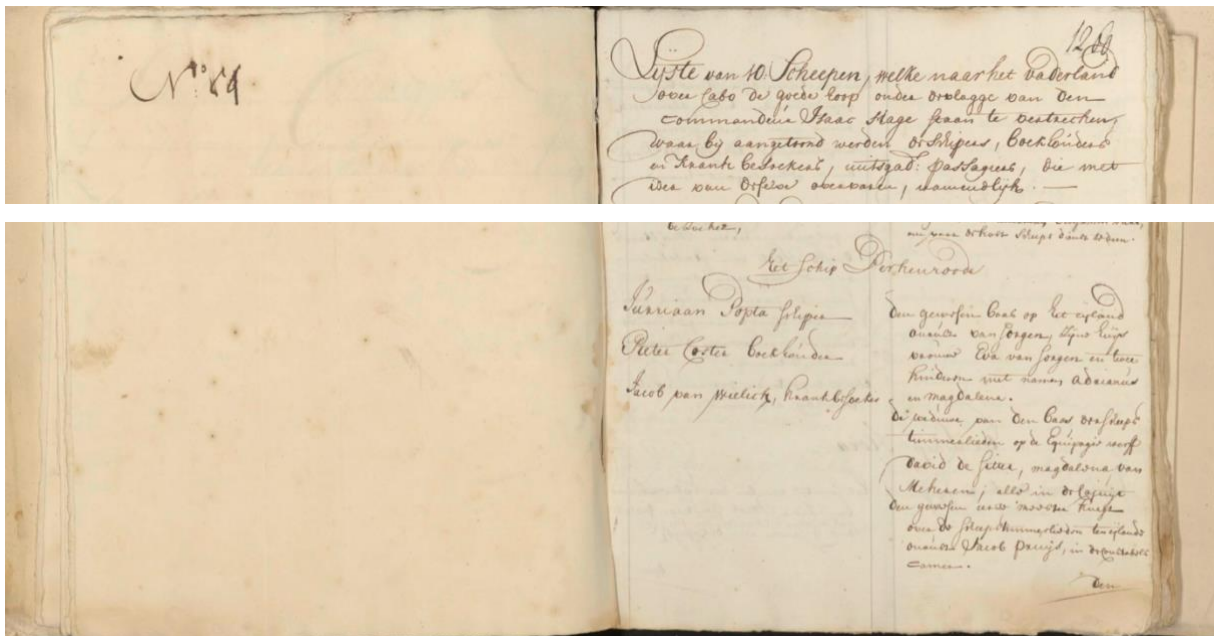 N:o 89
1200
Lijste van 10 Scheepen, welke naar het vaderland
over Cabo de goede hoop onder de vlagge van den
Commandeur Isaac Stage staan te vertrecken,
waar bij aangetoond werden de schipers, boekhouders
en krank besoekers, uitsgad: passagiers, die met
ider van deselve overvaren, namendlijk. —
besoeker,
Het Schip Berkenroode
Jurriaan Popta schiper
Pieter Coster boekhouder
Jacob van Wielick, krankbesoeker
den gewesen baas op het eijland
onrust van Jorgen, zijne huijs
vrouw Eva van Jorgen en twee
kinderen met namen Adrianus
en magdalena.
de weduwe van den baas der scheeps
timmerlieden op de Equipagie werff
david de Sitter, magdalena van
Mekeren, alle in de Cajuijt
den gewesen meester knegt
over de scheepstimmerlieden ten eijlande
onrust Jacob Pruijs, in de Constabels
camer.
den